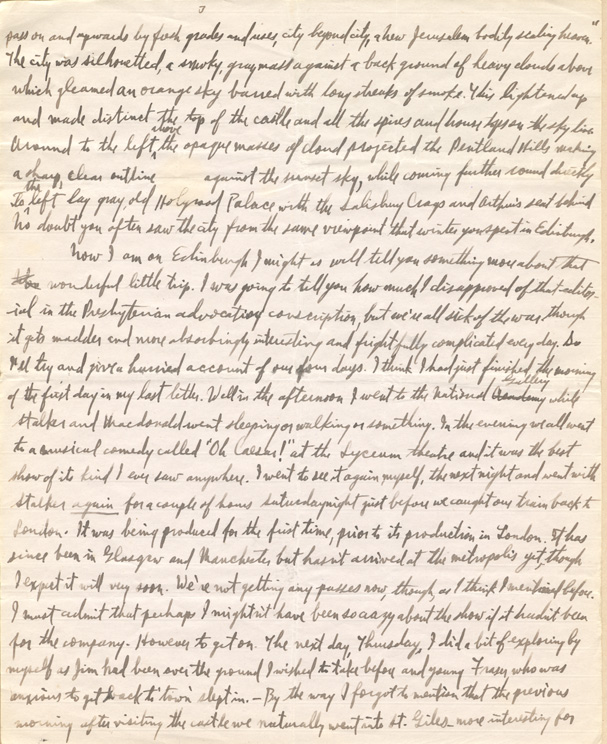 3
pass on and upwards by fresh grades and rises, city beyond city, a new Jerusalem bodily scaling heaven."
The city was silhouetted, a smoky, gray mass against a back ground of heavy clouds above
which gleamed an orange sky barred with long streaks of smoke. This lightened up
and made distinct the top of the castle and all the spires and house tops on the sky line
Around to the left above the opaque masses of cloud projected the Pentland Hills, making
a sharp, clear outline against the sunset sky, while coming further round directly
to the left lay gray old Holyrood Palace with the Salisbury Crags and Arthur's seat behind
No doubt you often saw the city from the same viewpoint that winter you spent in Edinburgh.
Now I am on Edinburgh I might as well tell you something more about that
wonderful little trip. I was going to tell you how much I disapproved of that editor-
ial in the Presbyterian advocating conscription, but we're all sick of the war, though
it gets madder and more absorbingly interesting and frightfully complicated every day. So
I'll try and give a hurried account of our four days. I think I had just finished the morning
of the first day in my last letter. Well in the afternoon I went to the National Gallery while
Stalker and Macdonald went sleeping or walking or something. In the evening we all went
to a musical comedy called "Oh Caesar!" at the Lyceum theatre and it was the best
show of its kind I ever saw anywhere. I went to see it again myself, the next night and went with
Stalker again for a couple of hours saturday night just before we caught our train back to
London. It was being produced for the first time, prior to its production in London. It has
since been in Glasgow and Manchester but hasn't arrived at the metropolis yet, though
I expect it will very soon. We're not getting any passes now, though, as I think I mentioned before.
I must admit that perhaps I mightn't have been so crazy about the show if it hadn't been
for the company. However to get on. The next day, Thursday, I did a bit of exploring by
myself as Jim had been over the ground I wished to take before and young Fraser who was
anxious to get back to 'town' slept in. — By the way I forgot to mention that the previous
morning after visiting the castle we naturally went into St. Giles - more interesting for